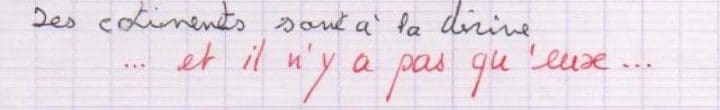 Les cotinents sont à la dirive
... et il n'y a pas qu'euxe...